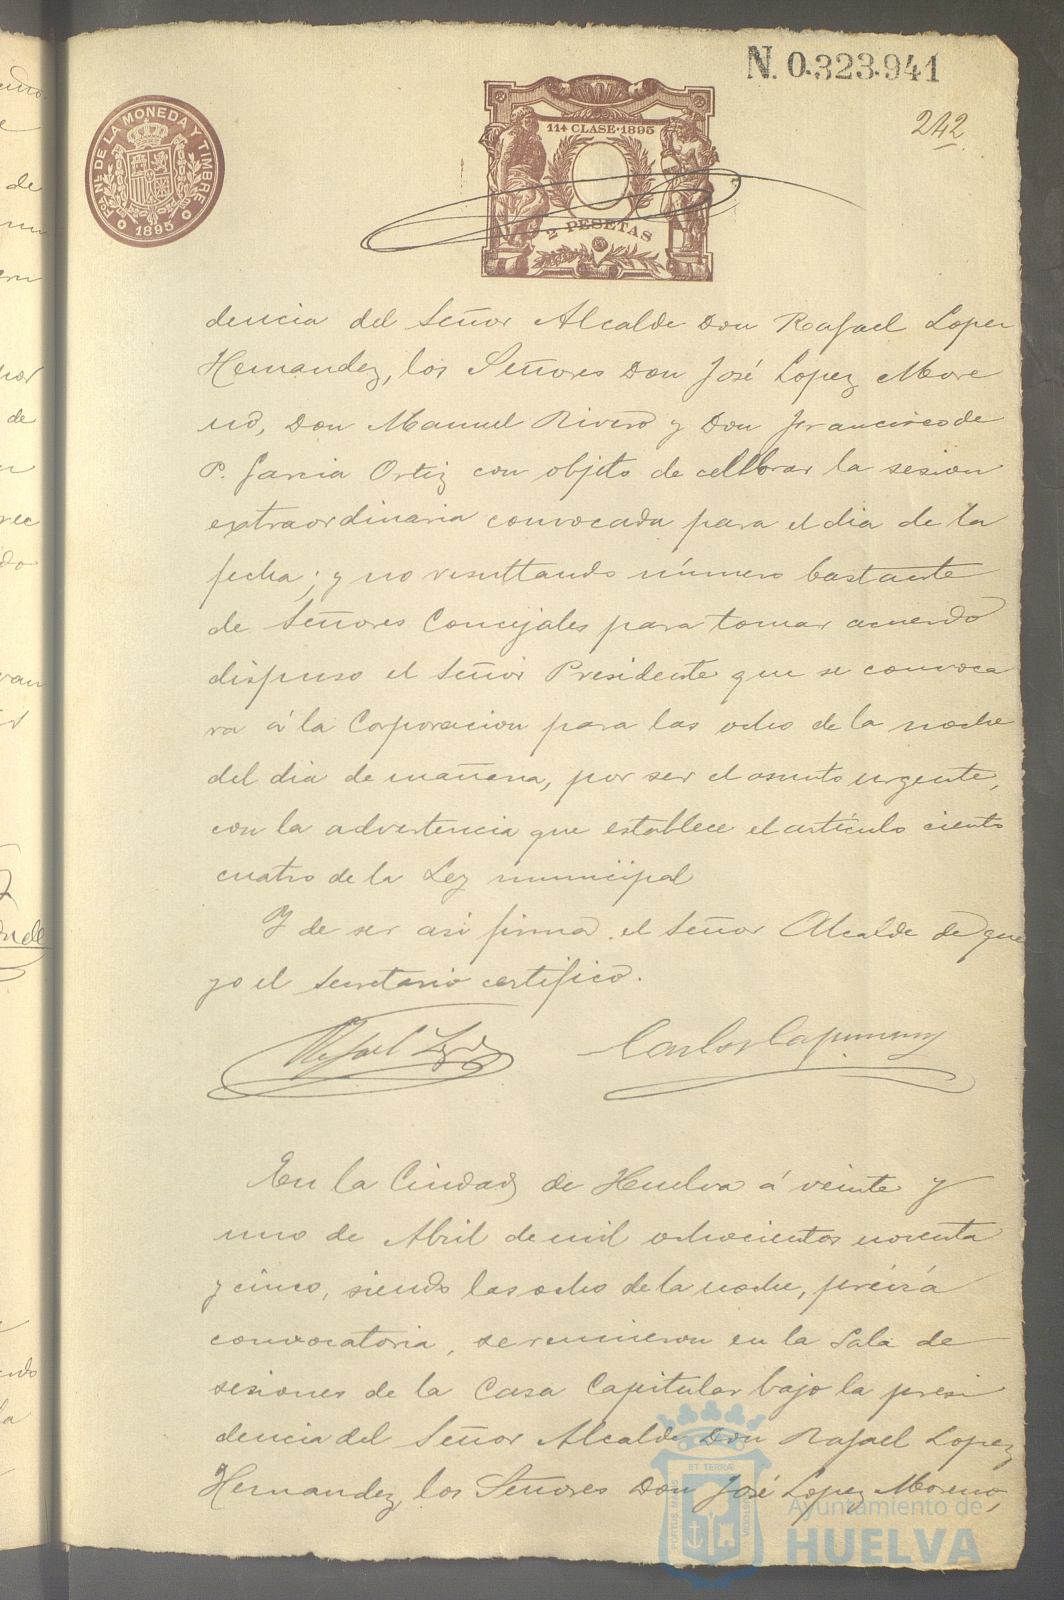 N. 0.323.941
242
FCA. NAL. DE LA MONEDA Y TIMBRE
1895
11ª CLASE·1895
2 PESETAS
dencia del Señor Alcalde Don Rafael Lopez
Hernandez, los Señores Don José Lopez More
no, Don Manuel Rivero y Don Francisco de
P. Garcia Ortiz con objeto de celebrar la sesion
extraordinaria convocada para el dia de la
fecha; y no resultando número bastante
de Señores Concejales para tomar acuerdo
dispuso el Señor Presidente que se convoca
ra á la Corporacion para las ocho de la noche
del dia de mañana, por ser el asunto urgente,
con la advertencia que establece el artículo ciento
cuatro de la Ley municipal
Y de ser asi firma el Señor Alcalde de que
yo el Secretario certifico.
Rafael Lopez
Carlos
En la Ciudad de Huelva á veinte y
uno de Abril de mil ochocientos noventa
y cinco, siendo las ocho de la noche, prévia
convocatoria, se reunieron en la Sala de
sesiones de la Casa Capitular bajo la presi
dencia del Señor Alcalde Don Rafael Lopez
Hernandez, los Señores Don José Lopez Moreno,
PORTUS MARIS ET TERRÆ CUSTODIA
Ayuntamiento de
HUELVA